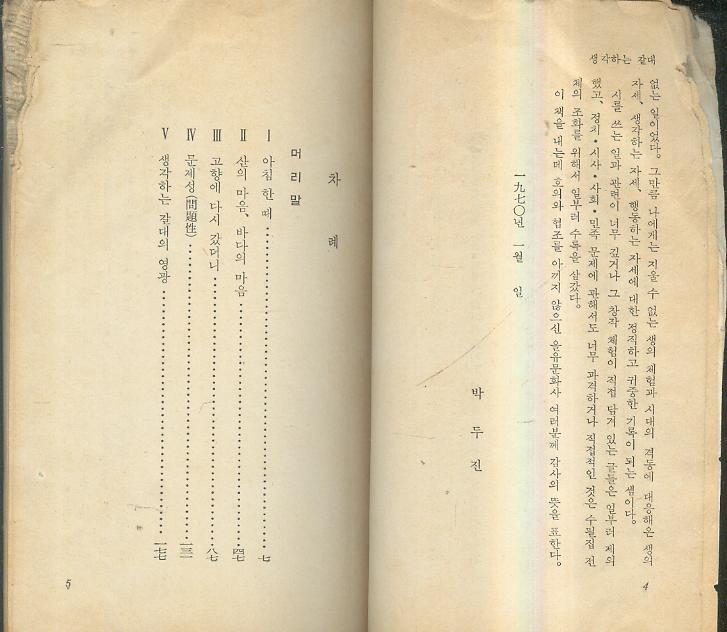 생각하는 갈대
없는 일이었다. 그만큼 나에게는 지울 수 없는 생의 체험과 시대의 격동에 대응해온 생의
자세, 생각하는 자세, 행동하는 자세에 대한 정직하고 귀중한 기록이 되는 셈이다.
시를 쓰는 일과 관련이 너무 깊거나 그 창작 체험이 직접 담겨 있는 글들은 일부러 제외
했고, 정치·시사·사회·민족 문제에 관해서도 너무 과격하거나 직접적인 것은 수필집 전
체의 조화를 위해서 일부러 수록을 삼갔다.
이 책을 내는데 호의와 협조를 아끼지 않으신 을유문화사 여러분께 감사의 뜻을 표한다.
一九七〇년 一월 일
박두진
4
차례
머리말
Ⅰ 아침 한 때 七
Ⅱ 산의 마음, 바다의 마음 四七
Ⅲ 고향에 다시 갔더니 八七
Ⅳ 문제성(問題性) 一三一
Ⅴ 생각하는 갈대의 영광 一七七
5